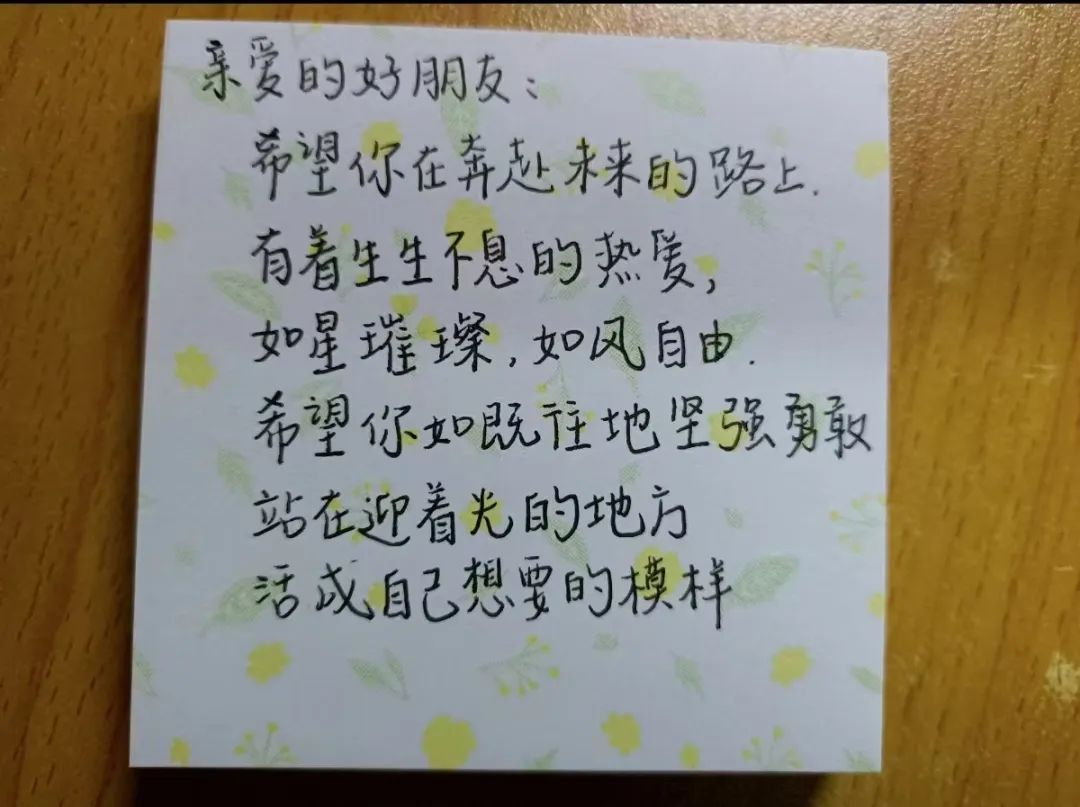 亲爱的好朋友：
希望你在奔赴未来的路上.
有着生生不息的热爱，
如星璀璨，如风自由.
希望你如既往地坚强勇敢
站在迎着光的地方
活成自己想要的模样